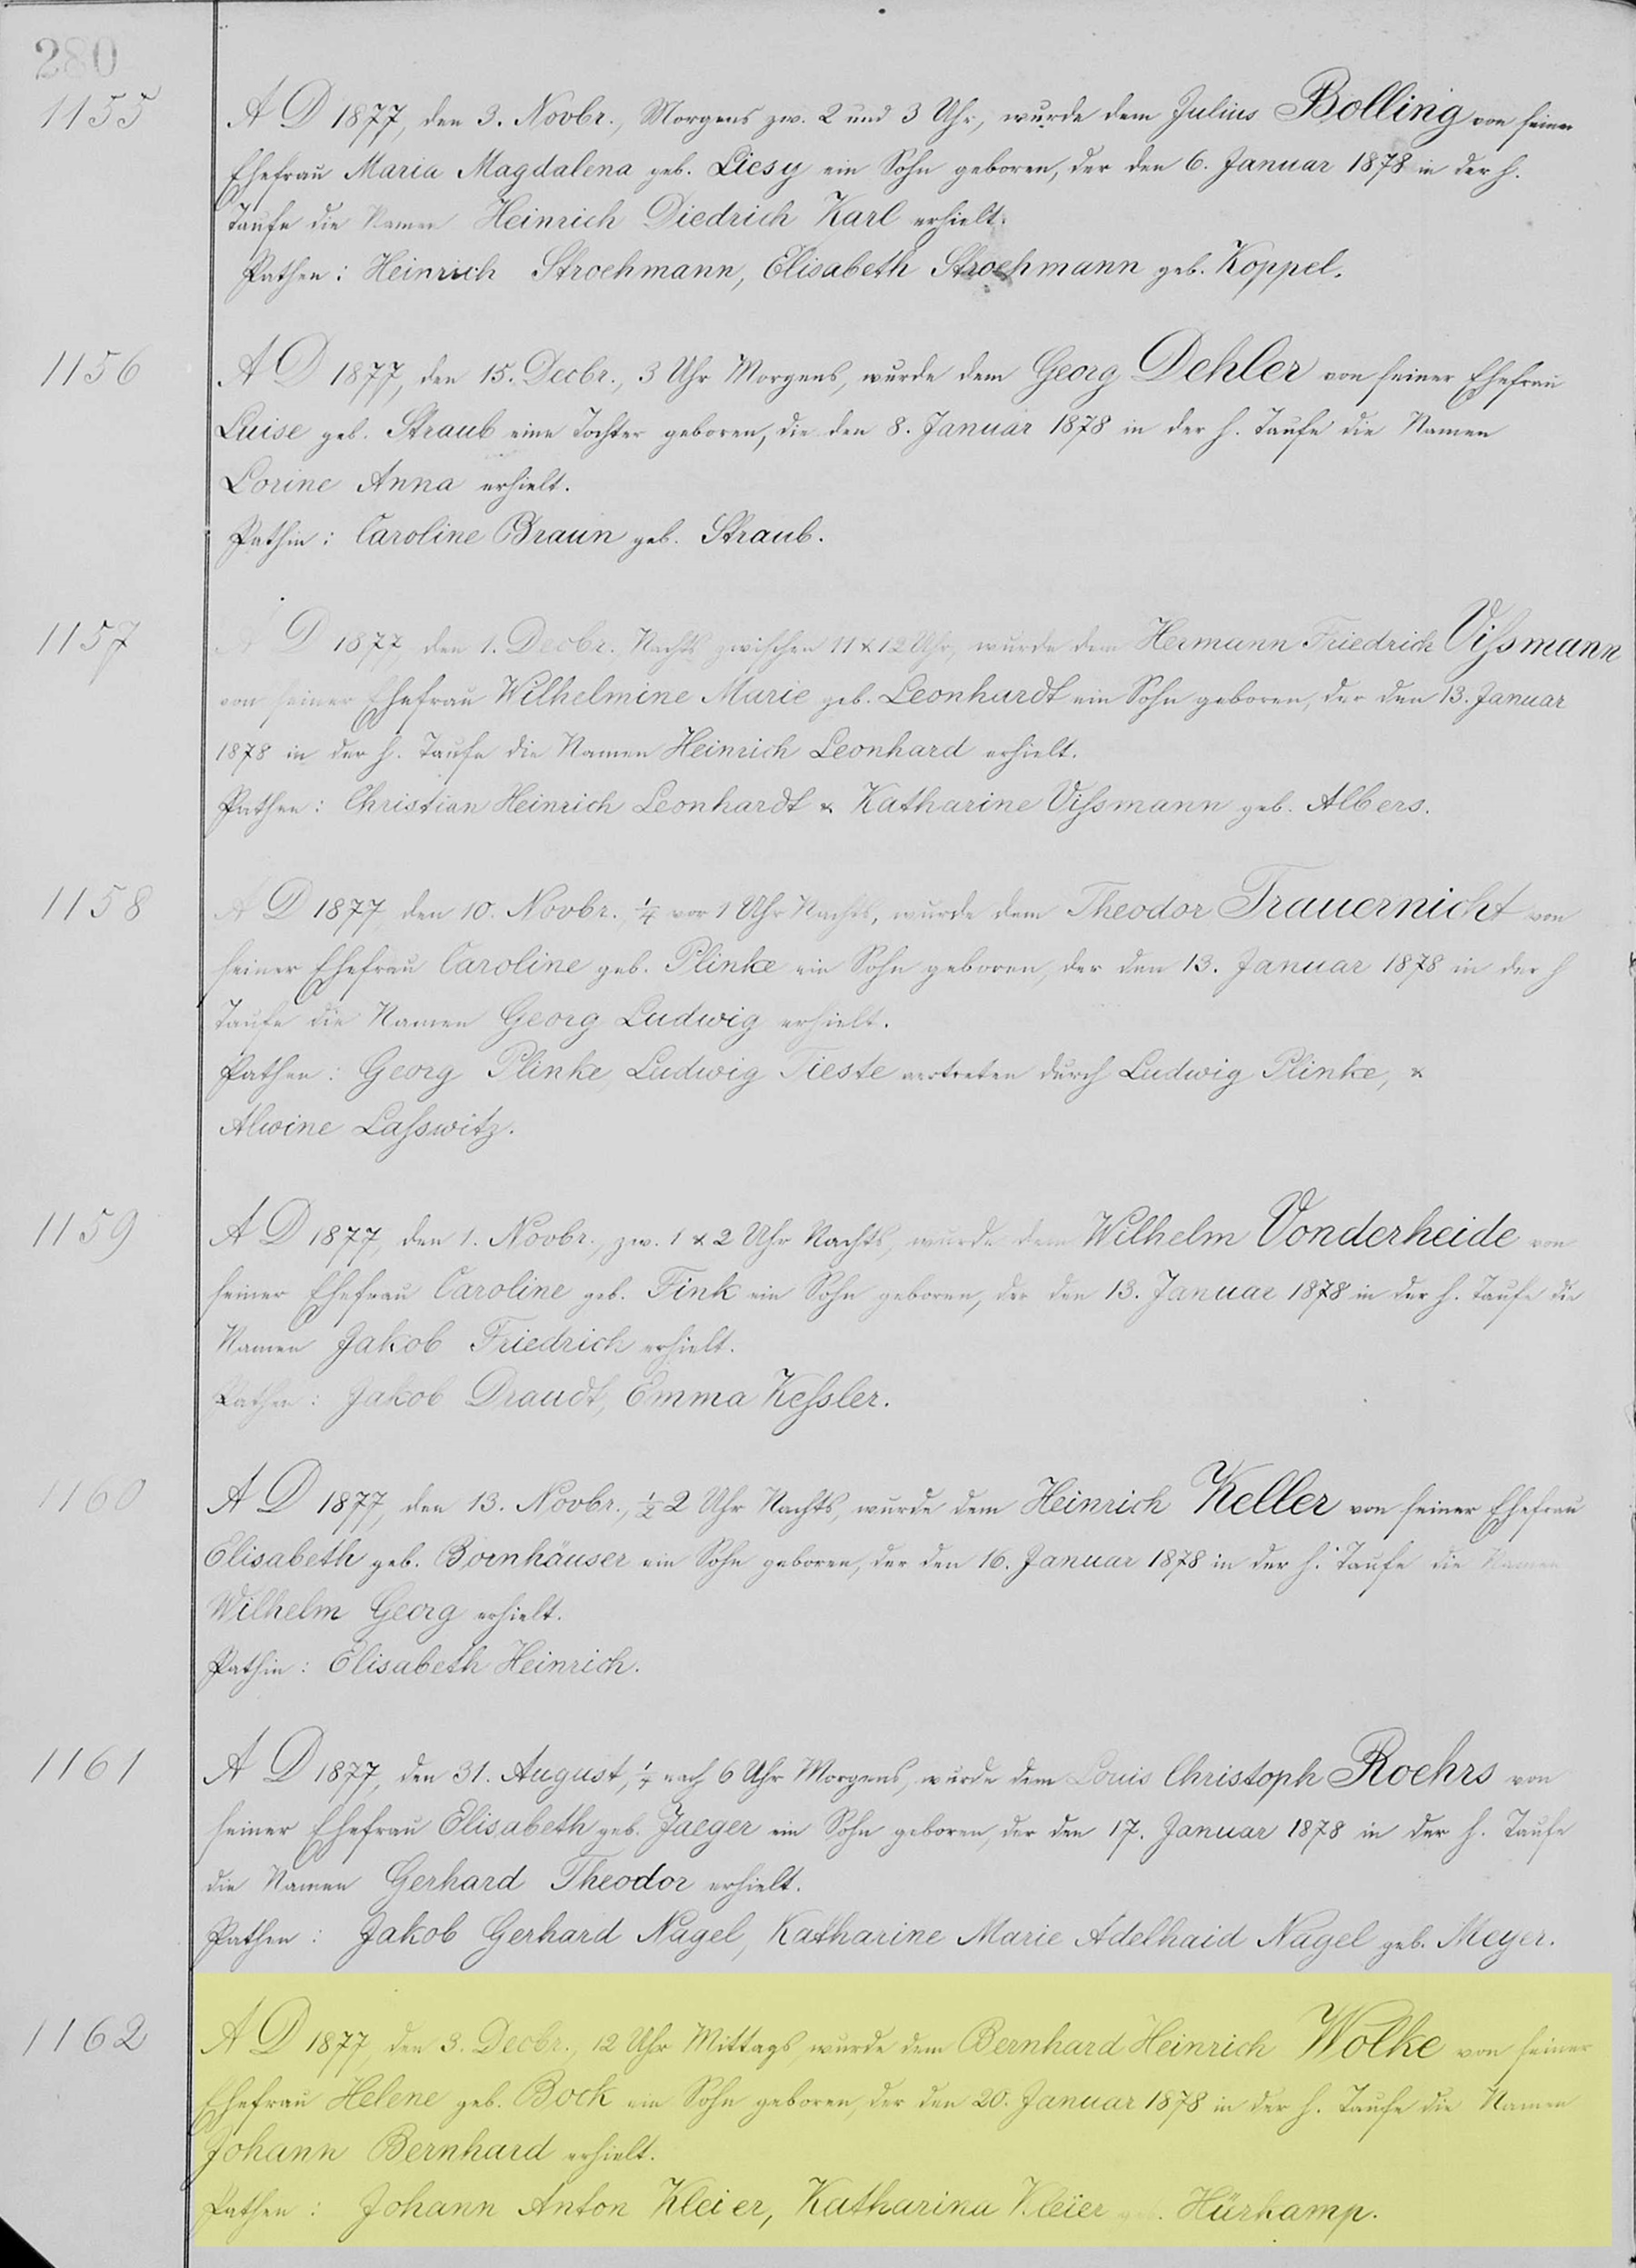 280
1155
A D 1877, den 3. Novbr., Morgens zw. 2 und 3 Uhr, wurde dem Julius Bolling von seiner
Ehefrau Maria Magdalena geb. Liesy ein Sohn geboren, der den 6. Januar 1878 in der h.
Taufe die Namen Heinrich Diedrich Karl erhielt.
Pathen: Heinrich Stroehmann, Elisabeth Stroehmann geb. Koppel.
1156
A D 1877, den 15. Decbr., 3 Uhr Morgens, wurde dem Georg Dehler von seiner Ehefrau
Luise geb. Straub eine Tochter geboren, die den 8. Januar 1878 in der h. Taufe die Namen
Lorine Anna erhielt.
Pathin: Caroline Braun geb. Straub.
1157
A D 1877, den 1. Decbr. Nachts zwischen 11 & 12 Uhr, wurde dem Hermann Friedrich Vißmann
von seiner Ehefrau Wilhelmine Marie geb. Leonhardt ein Sohn geboren, der den 13. Januar
1878 in der h. Taufe die Namen Heinrich Leonhard erhielt.
Pathen: Christian Heinrich Leonhardt & Katharine Vißmann geb. Albers.
1158
A D 1877, den 10. Novbr. ¼ vor 1 Uhr Nachts, wurde dem Theodor Trauernicht von
seiner Ehefrau Caroline geb. Plinke ein Sohn geboren, der den 13. Januar 1878 in der h
Taufe die Namen Georg Ludwig erhielt.
Pathen: Georg Plinke, Ludwig Tieste vertreten durch Ludwig Plinke, &
Alwine Laßwitz.
1159
A D 1877, den 1. Novbr., zw. 1 & 2 Uhr Nachts, wurde dem Wilhelm Vonderheide von
seiner Ehefrau Caroline geb. Fink ein Sohn geboren, der den 13. Januar 1878 in der h. Taufe die
Namen Jakob Friedrich erhielt.
Pathen: Jakob Draudt, Emma Keßler.
1160
A D 1877, den 13. Novbr., ½ 2 Uhr Nachts, wurde dem Heinrich Keller von seiner Ehefrau
Elisabeth geb. Bornhäuser ein Sohn geboren, der den 16. Januar 1878 in der h. Taufe die Namen
Wilhelm Georg erhielt.
Pathin: Elisabeth Heinrich.
1161
A D 1877, den 31. August, ¼ nach 6 Uhr Morgens, wurde dem Louis Christoph Roehrs von
seiner Ehefrau Elisabeth geb. Jaeger ein Sohn geboren, der den 17. Januar 1878 in der h. Taufe
die Namen Gerhard Theodor erhielt.
Pathen: Jakob Gerhard Nagel, Katharine Marie Adelhaid Nagel geb. Meyer.
1162
A D 1877, den 3. Decbr., 12 Uhr Mittags, wurde dem Bernhard Heinrich Wolke von seiner
Ehefrau Helene geb. Bock ein Sohn geboren, der den 20. Januar 1878 in der h. Taufe die Namen
Johann Bernhard erhielt.
Pathen: Johann Anton Kleier, Katharina Kleier geb. Hürkamp.